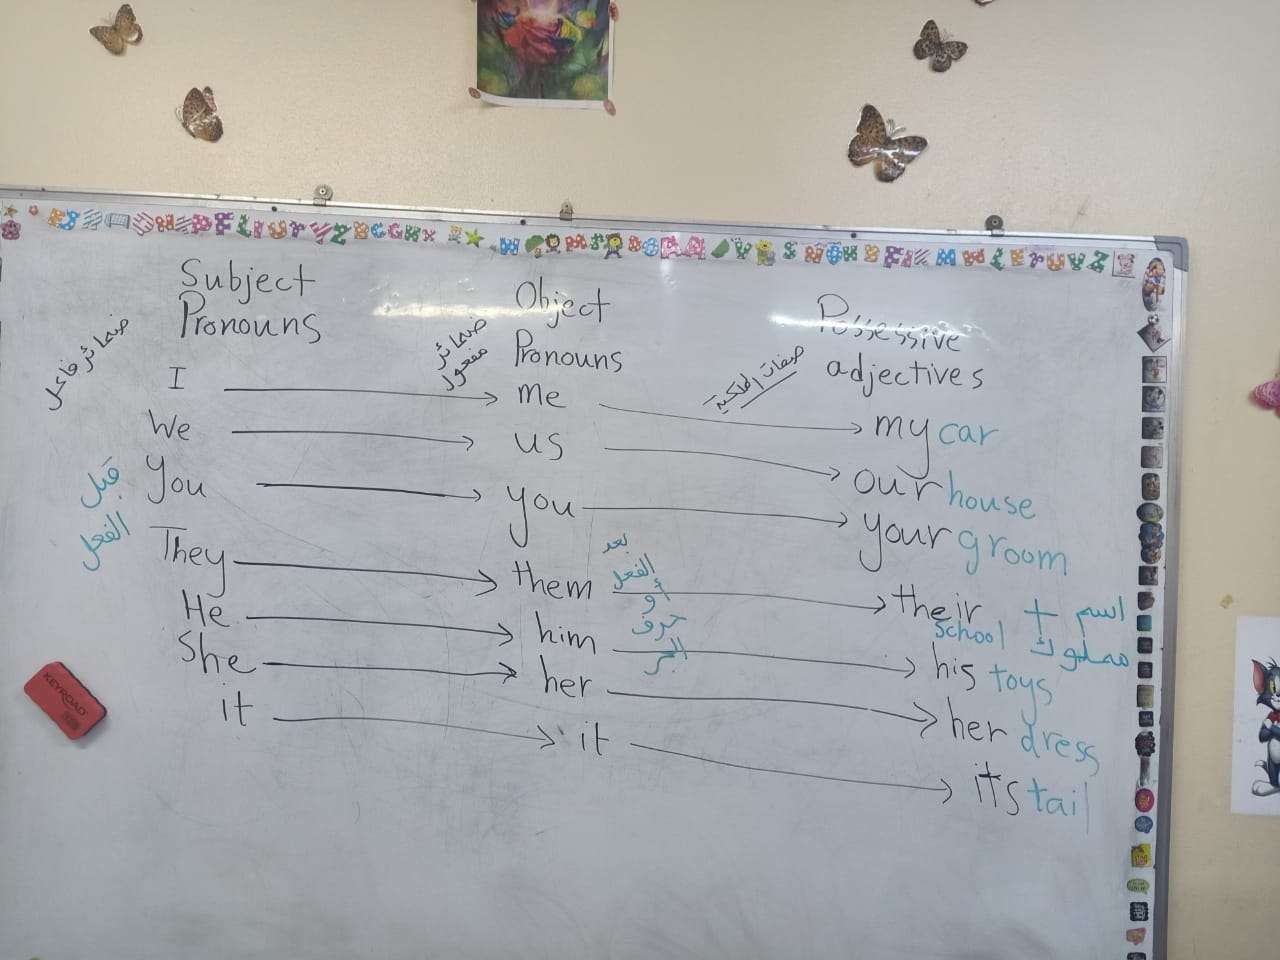 Subject
Pronouns
ضمائر فاعل
Object
Pronouns
ضمائر
مفعول
Possessive
adjectives
صفات الملكية
I me my car
We us our house
You you your groom
They them their school
He him his toys
She her her dress
it it its tail
قبل
الفعل
بعد
الفعل
أو
حرف
الجر
+ اسم
مملوك
KEYROAD